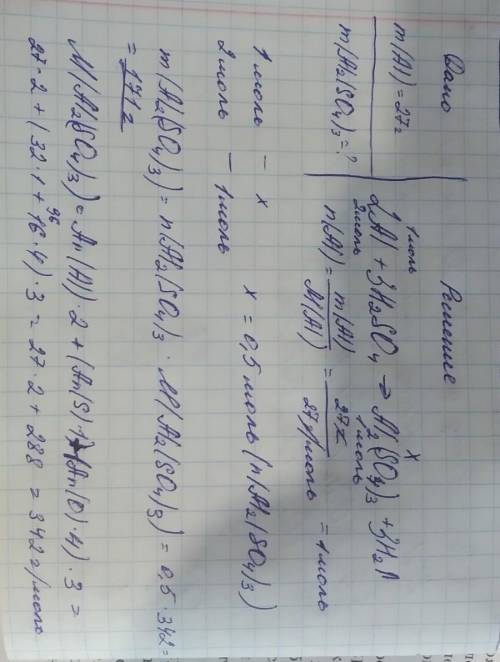 Дано
Решение
m(Al) = 27г
m(Al2(SO4)3 = ?
1 моль x
2Al + 3H2SO4 → Al2(SO4)3 + 3H2↑
2моль 1 моль
n(Al) = m(Al) / M(Al) = 27г / 27г/моль = 1 моль
1 моль – x
2 моль – 1 моль
x = 0,5 моль (n(Al2(SO4)3)
m(Al2(SO4)3) = n(Al2(SO4)3 · M(Al2(SO4)3) = 0,5 · 342 =
= 171г
M(Al2(SO4)3) = Ar(Al) · 2 + (Ar(S) · 1 + (Ar(O) · 4) · 3 =
96
27 · 2 + (32 · 1 + 16 · 4) · 3 = 27 · 2 + 288 = 342 г/моль